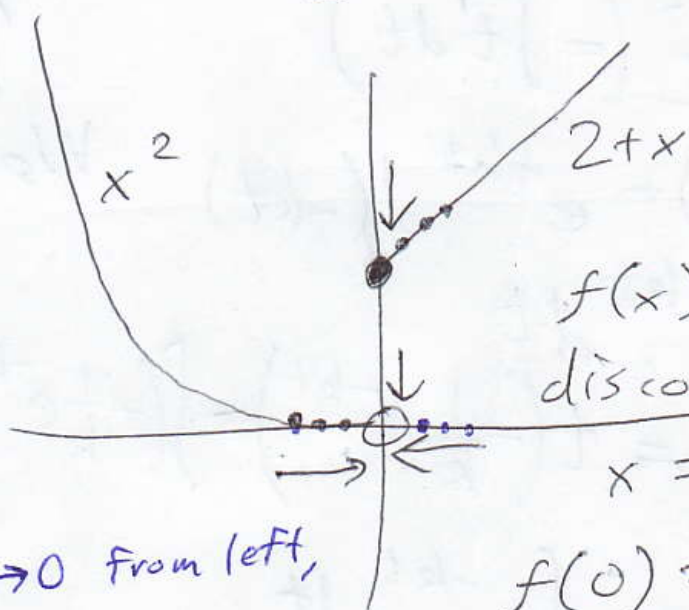 x²
2+x
f(x)
disco
x =
→0 from left,
f(0)